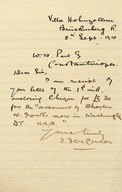 Villa Hohenzollern
Brückenberg R.
8th Sept. 1910
W. H. Peet Esq
Constantinople.
Dear Sir,
I am in receipt
of your letter of the 1st inst.
enclosing Cheque for £30
for the "account of Charles
W. Fowle now in Washington
D.C. U.S.A"
Yours truly